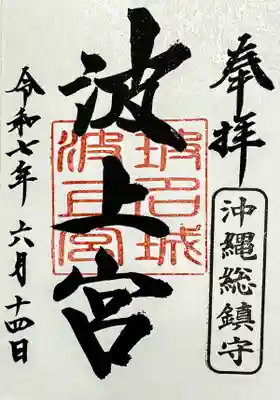 奉拝
沖縄総鎮守
波上宮
波上宮
令和七年 六月十四日